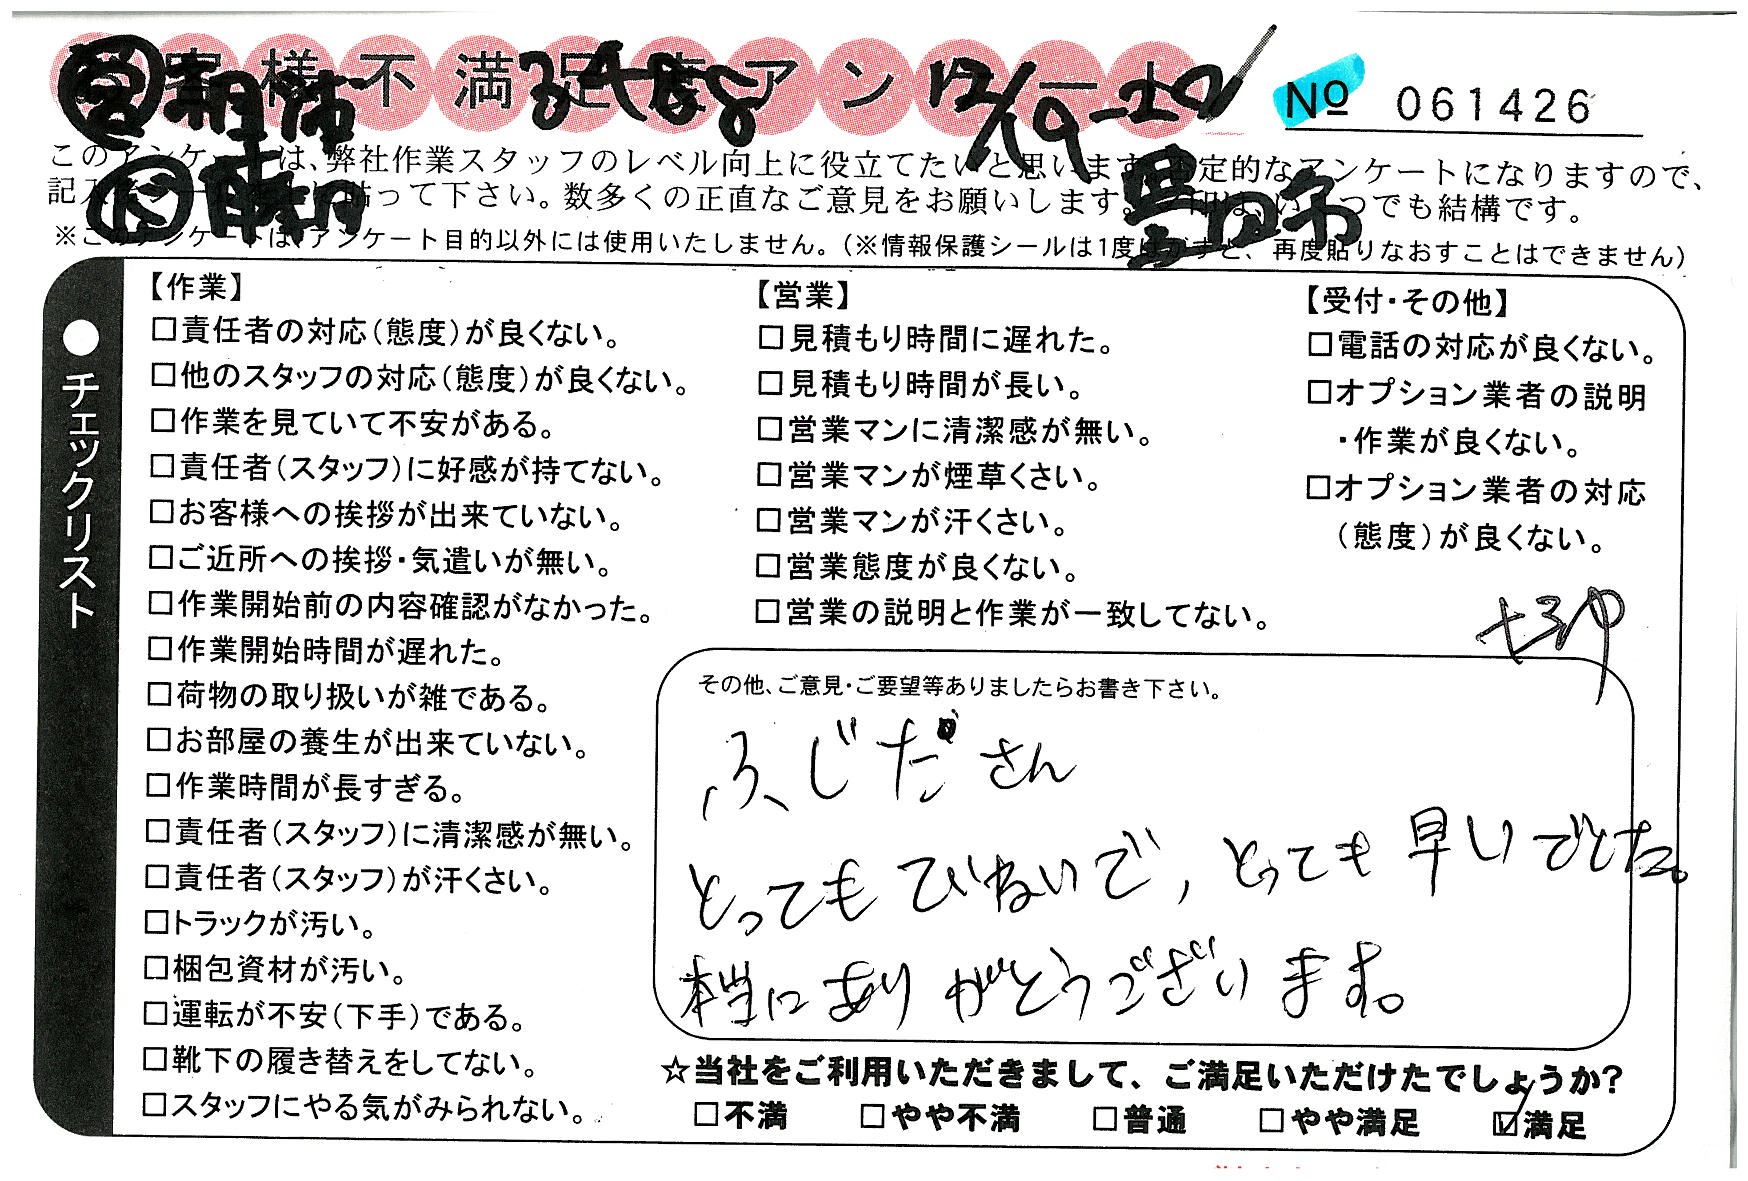 お客様不満足度アンケート
№ 061426
このアンケートは、弊社作業スタッフのレベル向上に役立てたいと思います。否定的なアンケートになりますので、
記入後シールを上に貼って下さい。数多くの正直なご意見をお願いします。 印は、いくつでも結構です。
※このアンケートは、アンケート目的以外には使用いたしません。(※情報保護シールは1度はがすと、再度貼りなおすことはできません)
豊田市
●チェックリスト
【作業】
□責任者の対応(態度)が良くない。
□他のスタッフの対応(態度)が良くない。
□作業を見ていて不安がある。
□責任者(スタッフ)に好感が持てない。
□お客様への挨拶が出来ていない。
□ご近所への挨拶・気遣いが無い。
□作業開始前の内容確認がなかった。
□作業開始時間が遅れた。
□荷物の取り扱いが雑である。
□お部屋の養生が出来ていない。
□作業時間が長すぎる。
□責任者(スタッフ)に清潔感が無い。
□責任者(スタッフ)が汗くさい。
□トラックが汚い。
□梱包資材が汚い。
□運転が不安(下手)である。
□靴下の履き替えをしてない。
□スタッフにやる気がみられない。
【営業】
□見積もり時間に遅れた。
□見積もり時間が長い。
□営業マンに清潔感が無い。
□営業マンが煙草くさい。
□営業マンが汗くさい。
□営業態度が良くない。
□営業の説明と作業が一致してない。
【受付・その他】
□電話の対応が良くない。
□オプション業者の説明
・作業が良くない。
□オプション業者の対応
(態度)が良くない。
その他、ご意見・ご要望等ありましたらお書き下さい。
ふじださん
とってもていねいで、とっても早いでした。
本当にありがとうございます。
☆当社をご利用いただきまして、ご満足いただけたでしょうか?
□不満 □やや不満 □普通 □やや満足 ☑満足